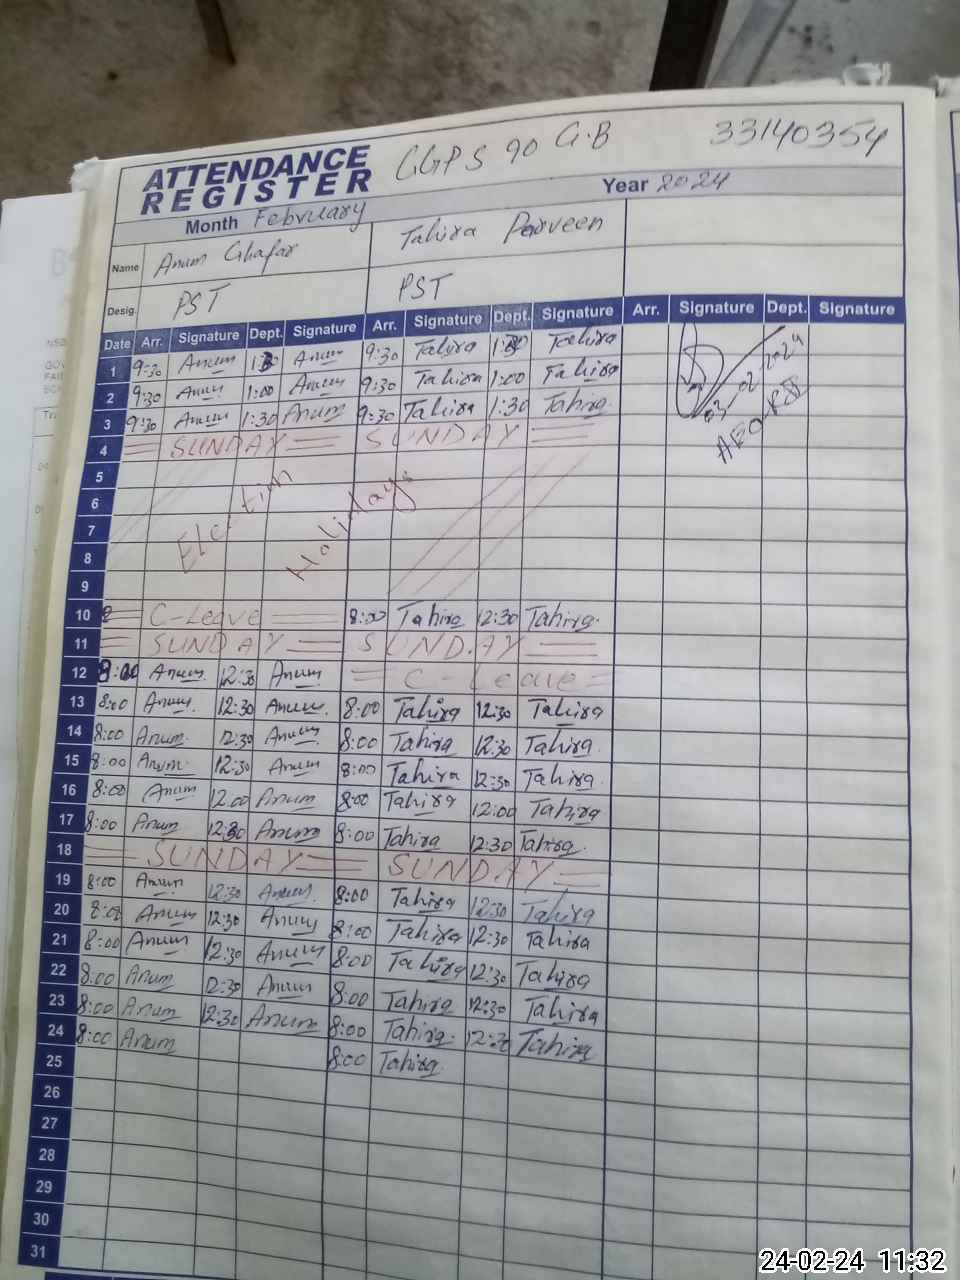 ATTENDANCE REGISTER GGPS 90 G.B 33140354
Month February Year 2024
Name Anum Ghafar Tahira Parveen
Desig. PST PST
Date Arr. Signature Dept. Signature Arr. Signature Dept. Signature Arr. Signature Dept. Signature
1 9:30 Anum Anum 9:30 Tahira Tahira
2 9:30 Anum 1:00 Anum 9:30 Tahira 1:00 Tahira
3 9:30 Anum 1:30 Anum 9:30 Tahira 1:30 Tahira 03-02-2024
4 SUNDAY SUNDAY AEO
5
6 Election
7 Holidays
8
9
10 C-Leave 8:00 Tahira 12:30 Tahira
11 SUNDAY SUNDAY
12 8:00 Anum 12:30 Anum C-Leave
13 8:00 Anum 12:30 Anum 8:00 Tahira 12:30 Tahira
14 8:00 Anum 12:30 Anum 8:00 Tahira 12:30 Tahira
15 8:00 Anum 12:30 Anum 8:00 Tahira 12:30 Tahira
16 8:00 Anum 12:00 Anum 8:00 Tahira 12:00 Tahira
17 8:00 Anum 12:30 Anum 8:00 Tahira 12:30 Tahira
18 SUNDAY SUNDAY
19 8:00 Anum 12:30 Anum 8:00 Tahira 12:30 Tahira
20 8:00 Anum 12:30 Anum 8:00 Tahira 12:30 Tahira
21 8:00 Anum 12:30 Anum 8:00 Tahira 12:30 Tahira
22 8:00 Anum 12:30 Anum 8:00 Tahira 12:30 Tahira
23 8:00 Anum 12:30 Anum 8:00 Tahira 12:30 Tahira
24 8:00 Anum 8:00 Tahira
25
26
27
28
29
30
31
24-02-24 11:32